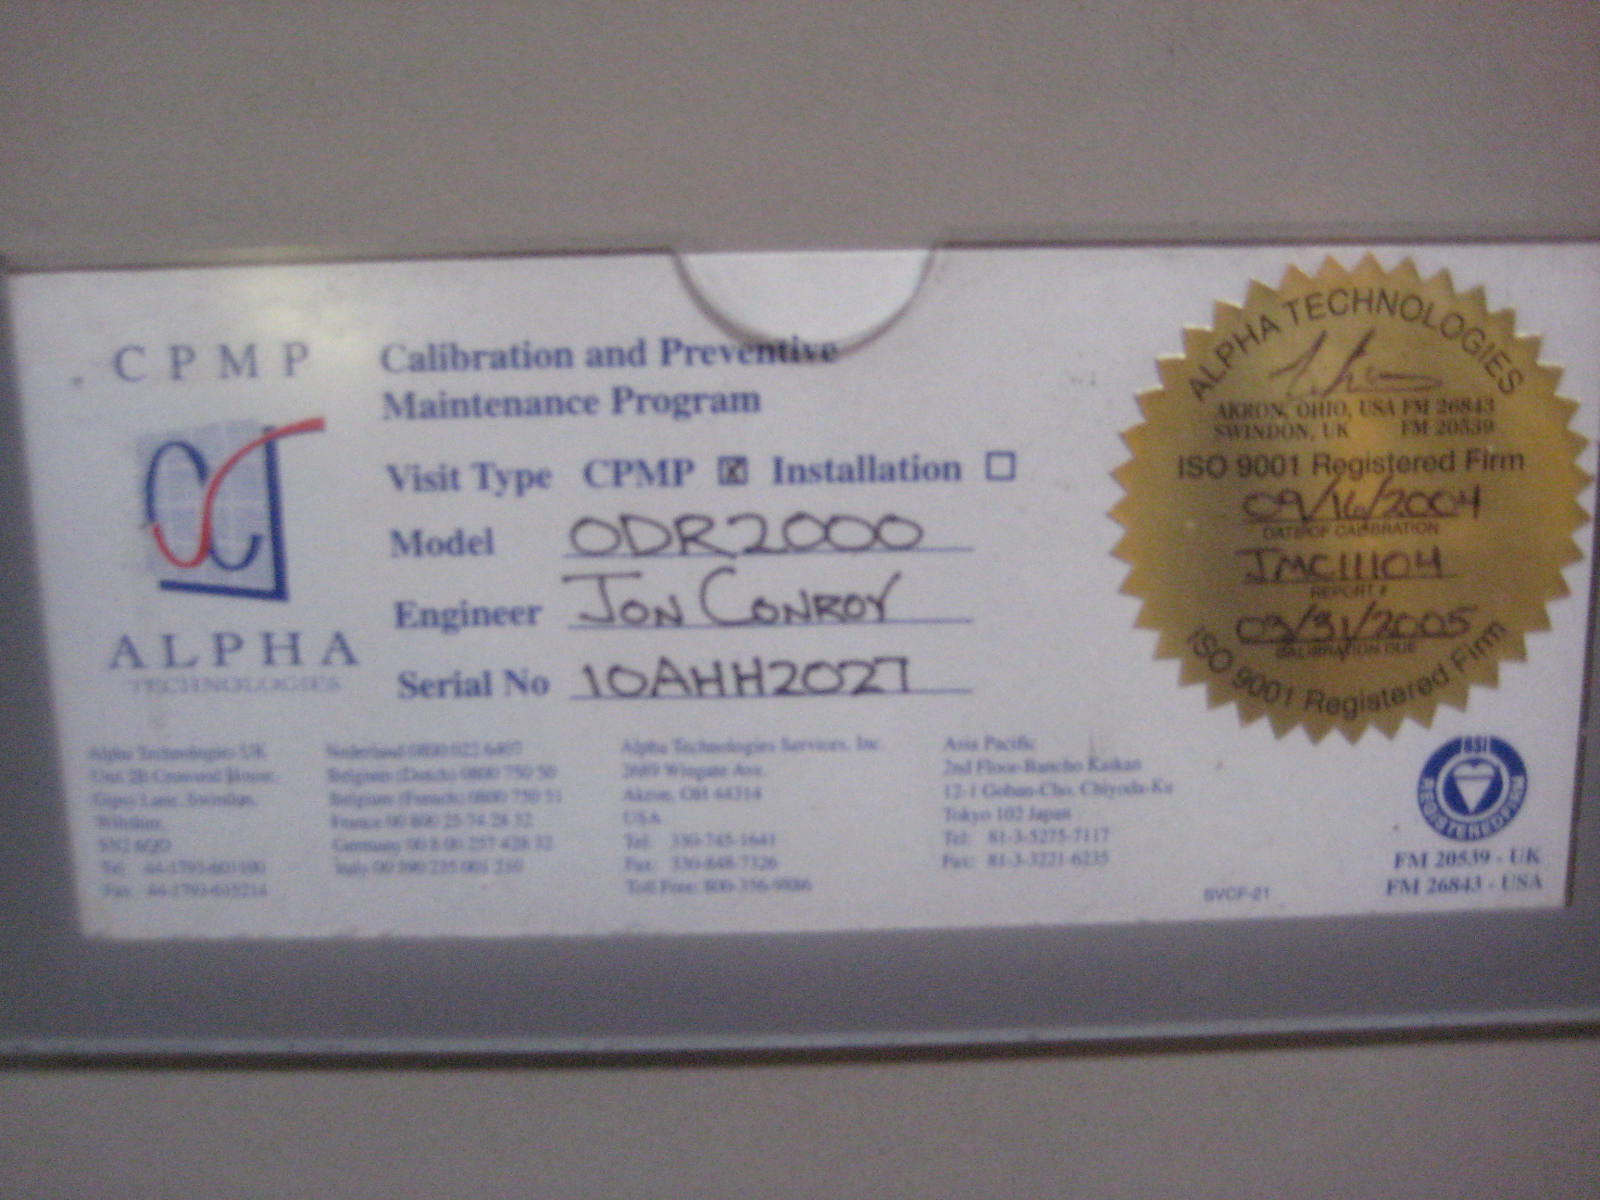 CPMP
Calibration and Preventive
Maintenance Program
Visit Type CPMP ☒ Installation ☐
Model ODR2000
Engineer JON CONROY
Serial No 10AHH2027
ALPHA
TECHNOLOGIES
ALPHA TECHNOLOGIES
AKRON, OHIO, USA FM 26843
SWINDON, UK FM 20539
ISO 9001 Registered Firm
09/16/2004
DATE OF CALIBRATION
JMC11104
REPORT #
03/31/2005
CALIBRATION DUE
ISO 9001 Registered Firm
Alpha Technologies UK
Gipsy Lane, Swindon,
Wiltshire,
Tel:
Fax:
Nederland 0800 022 6407
Belgium (Dutch) 0800 750 50
Belgium (French) 0800 750 51
France
Germany
Italy
Alpha Technologies Services, Inc.
2689 Wingate Ave.
Akron, OH 44314
USA
Tel: 330-745-1641
Fax: 330-848-7326
Toll Free:
Asia Pacific
2nd Floor-Bancho Kaikan
12-1 Goban-Cho, Chiyoda-Ku
Tokyo 102 Japan
Tel: 81-3-5275-7117
Fax: 81-3-3221-6235
SVCF-21
BSI
REGISTERED FIRM
FM 20539 - UK
FM 26843 - USA